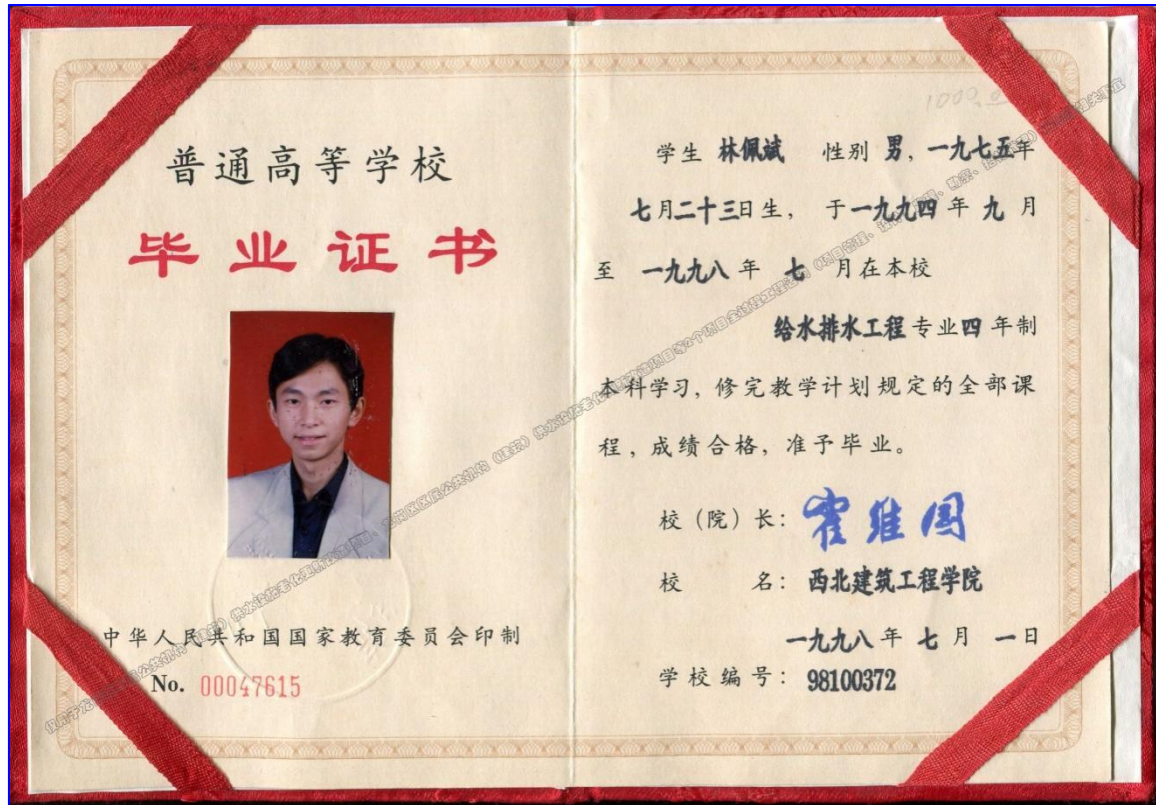 普通高等学校
毕业证书
中华人民共和国国家教育委员会印制
No. 00047615
学生 林佩斌 性别 男，一九七五年
七月二十三日生， 于一九九四 年 九 月
至 一九九八 年 七 月在本校
给水排水工程 专业四 年制
本科学习，修完教学计划规定的全部课
程，成绩合格，准予毕业。
校（院）长： 霍维国
校 名： 西北建筑工程学院
一九九八 年 七 月 一日
学校编号： 98100372